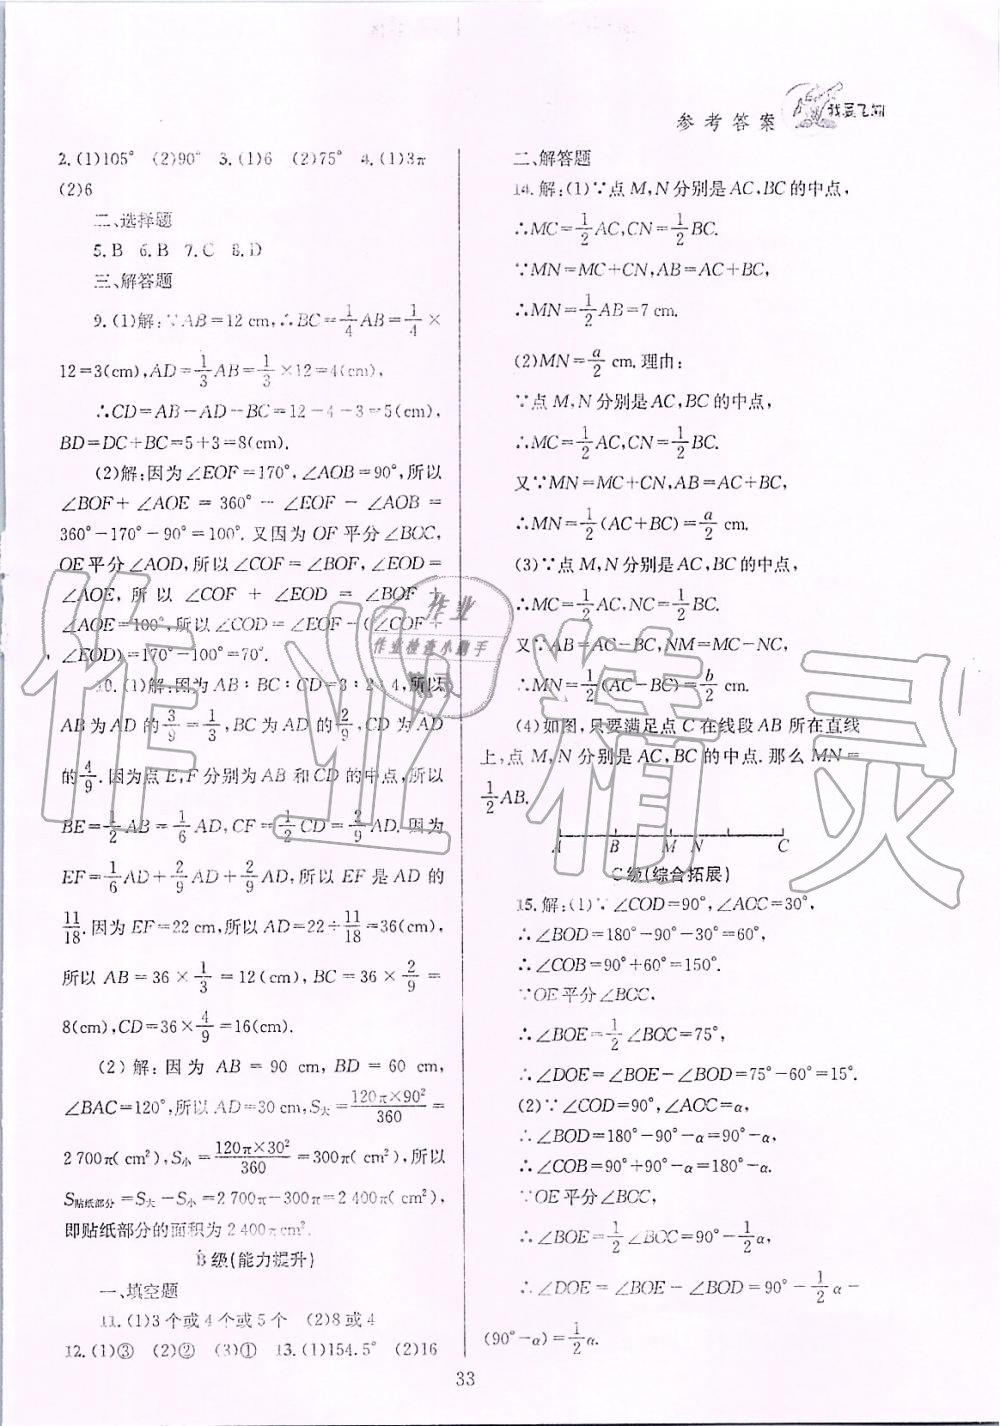 参考答案
我要飞翔
2.(1)105° (2)90° 3.(1)6 (2)75° 4.(1)3π
(2)6
二、选择题
5.B 6.B 7.C 8.D
三、解答题
9.(1)解:∵AB=12 cm,∴BC=1/4AB=1/4×
12=3(cm),AD=1/3AB=1/3×12=4(cm),
∴CD=AB-AD-BC=12-4-3=5(cm),
BD=DC+BC=5+3=8(cm).
(2)解:因为∠EOF=170°,∠AOB=90°,所以
∠BOF+∠AOE=360°-∠EOF-∠AOB=
360°-170°-90°=100°.又因为OF平分∠BOC,
OE平分∠AOD,所以∠COF=∠BOF,∠EOD=
∠AOE,所以∠COF+∠EOD=∠BOF+
∠AOE=100°,所以∠COD=∠EOF-(∠COF+
∠EOD)=170°-100°=70°.
10.(1)解:因为AB:BC:CD=3:2:4,所以
AB为AD的3/9=1/3,BC为AD的2/9,CD为AD
的4/9.因为点E,F分别为AB和CD的中点,所以
BE=1/2AB=1/6AD,CF=1/2CD=2/9AD.因为
EF=1/6AD+2/9AD+2/9AD,所以EF是AD的
11/18.因为EF=22 cm,所以AD=22÷11/18=36(cm),
所以AB=36×1/3=12(cm),BC=36×2/9=
8(cm),CD=36×4/9=16(cm).
(2)解:因为AB=90 cm,BD=60 cm,
∠BAC=120°,所以AD=30 cm,S大=120π×90²/360=
2 700π(cm²),S小=120π×30²/360=300π(cm²),所以
S贴纸部分=S大-S小=2 700π-300π=2 400π(cm²),
即贴纸部分的面积为2 400π cm².
B级(能力提升)
一、填空题
11.(1)3个或4个或5个 (2)8或4
12.(1)③ (2)② (3)① 13.(1)154.5° (2)16
二、解答题
14.解:(1)∵点M,N分别是AC,BC的中点,
∴MC=1/2AC,CN=1/2BC.
∵MN=MC+CN,AB=AC+BC,
∴MN=1/2AB=7 cm.
(2)MN=a/2 cm.理由:
∵点M,N分别是AC,BC的中点,
∴MC=1/2AC,CN=1/2BC.
又∵MN=MC+CN,AB=AC+BC,
∴MN=1/2(AC+BC)=a/2 cm.
(3)∵点M,N分别是AC,BC的中点,
∴MC=1/2AC,NC=1/2BC.
又∵AB=AC-BC,NM=MC-NC,
∴MN=1/2(AC-BC)=b/2 cm.
(4)如图,只要满足点C在线段AB所在直线
上,点M,N分别是AC,BC的中点.那么MN=
1/2AB.
A B M N C
C级(综合拓展)
15.解:(1)∵∠COD=90°,∠AOC=30°,
∴∠BOD=180°-90°-30°=60°,
∴∠COB=90°+60°=150°.
∵OE平分∠BOC,
∴∠BOE=1/2∠BOC=75°,
∴∠DOE=∠BOE-∠BOD=75°-60°=15°.
(2)∵∠COD=90°,∠AOC=α,
∴∠BOD=180°-90°-α=90°-α,
∴∠COB=90°+90°-α=180°-α.
∵OE平分∠BOC,
∴∠BOE=1/2∠BOC=90°-1/2α,
∴∠DOE=∠BOE-∠BOD=90°-1/2α-
(90°-α)=1/2α.
33
作业
作业检查小助手
作业精灵